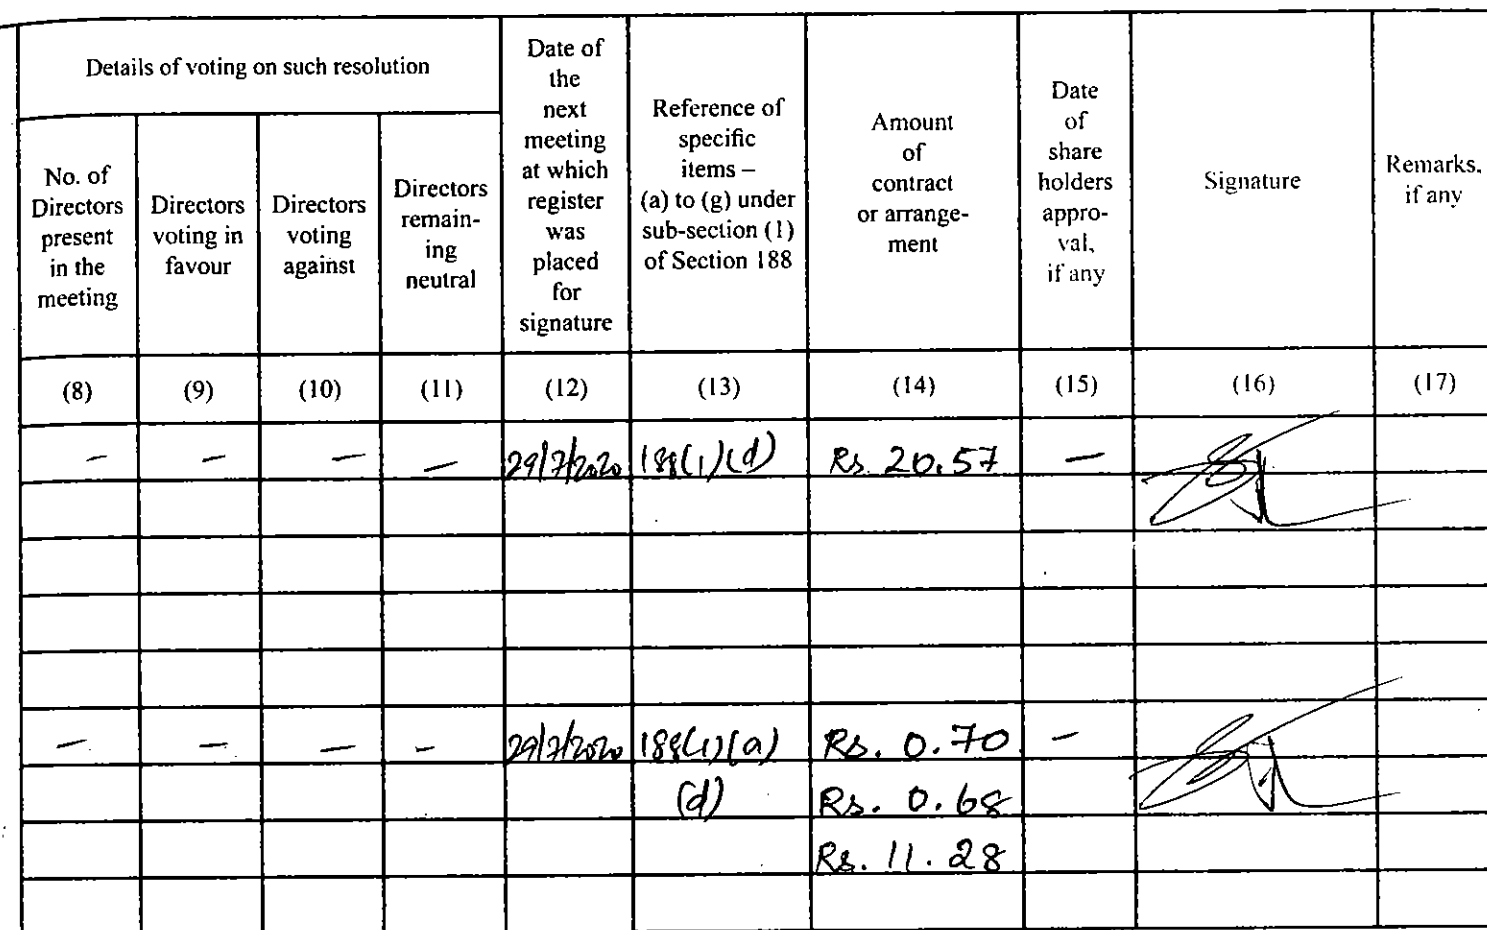 Details of voting on such resolution
Date of
the
next
meeting
at which
register
was
placed
for
signature
Reference of
specific
items –
(a) to (g) under
sub-section (1)
of Section 188
Amount
of
contract
or arrange-
ment
Date
of
share
holders
appro-
val,
if any
Signature
Remarks,
if any
No. of
Directors
present
in the
meeting
Directors
voting in
favour
Directors
voting
against
Directors
remain-
ing
neutral
(8) (9) (10) (11) (12) (13) (14) (15) (16) (17)
– – – – 29/7/2020 188(1)(d) Rs. 20.57 –
– – – – 29/7/2020 188(1)(a) Rs. 0.70 –
(d) Rs. 0.68
Rs. 11.28